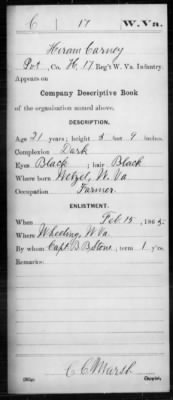 C 17 W. Va.
Hiram Carney
Pvt., Co. H, 17 Reg't W. Va. Infantry.
Appears on
Company Descriptive Book
of the organization named above.
DESCRIPTION.
Age 21 years; height 5 feet 9 inches.
Complexion Dark
Eyes Black; hair Black
Where born Wetzel, W. Va
Occupation Farmer
ENLISTMENT.
When Feb 15, 1865.
Where Wheeling, W. Va.
By whom Capt. B. B. Stone; term 1 y'rs.
Remarks:
C. C. Marsh
Copyist.